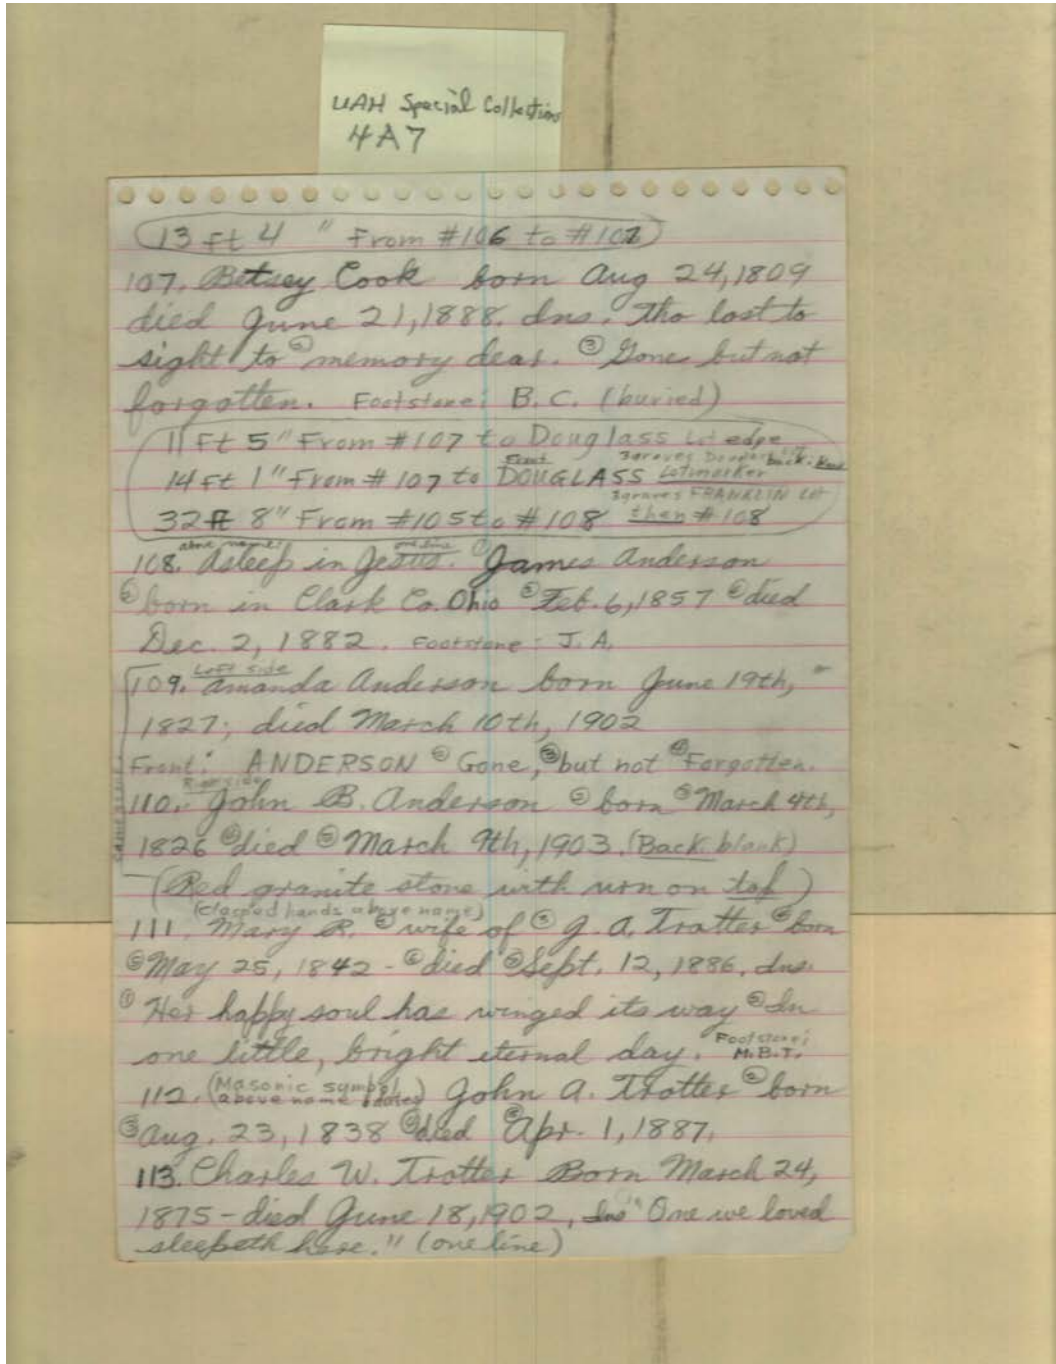 UAH Special Collections
4A7
13 ft 4 " From #106 to #107
107. Betsey Cook born Aug 24, 1809
died June 21, 1888. Ins. Tho lost to
sight to ② memory dear. ③ Gone but not
forgotten. Footstone: B. C. (buried)
11 ft 5" From #107 to Douglass Lot edge
3 graves
14 ft 1" From #107 to Front DOUGLASS Lotmarker
3 graves FRANKLIN Lot
32 ft 8" From #105 to #108 then #108
above name: one line
108. Asleep in Jesus. ① James Anderson
② born in Clark Co. Ohio ③ Feb. 6, 1857 ④ died
Dec. 2, 1882. Footstone: J. A.
Left side
109. Amanda Anderson born June 19th,
1827; died March 10th, 1902
Front: ANDERSON ② Gone, ③ but not ④ Forgotten.
Right side
110. John B. Anderson ② born ③ March 4th,
1826 ④ died ⑤ March 9th, 1903. (Back blank)
(Red granite stone with urn on top)
(clasped hands above name)
111. Mary R. ② wife of ③ J. A. Trotter ④ born
⑤ May 25, 1842 - ⑥ died ⑦ Sept. 12, 1886. Ins.
① Her happy soul has winged its way ② In
one little, bright eternal day. Footstone: M.B.T.
112. (Masonic symbol above name & dates) John A. Trotter ② born
③ Aug. 23, 1838 ④ died ⑤ Apr. 1, 1887.
113. Charles W. Trotter Born March 24,
1875 - died June 18, 1902, Ins "One we loved
sleepeth here." (one line)